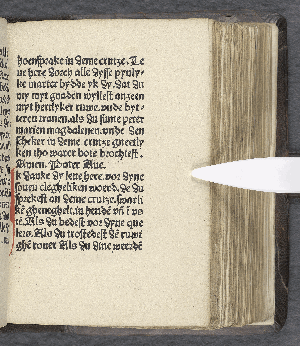 hoensprake in deme crutze. Le
ue here dorch alle dysse pynly-
ke marter bydde yk dy. dat du
my myt gnaden wyllest anzeen
myt hertlyker ruwe. vnde byt-
teren tranen. als du sunte peter
marien magdalenen. vnde den
scheker in deme crutze gnetly
ken tho warer bote brochtest.
Amen. Pater Aue.
k danke dy leue here. vor dyne
souen clegheliken word. de du
sprekest an deme crutze. swarli
ke gheneghelt. in hende vn̄ vo
te. Als du bedest vor dyne que
lers. Als du trostedest dē ruwi
ghē rouer Als du dine werdē